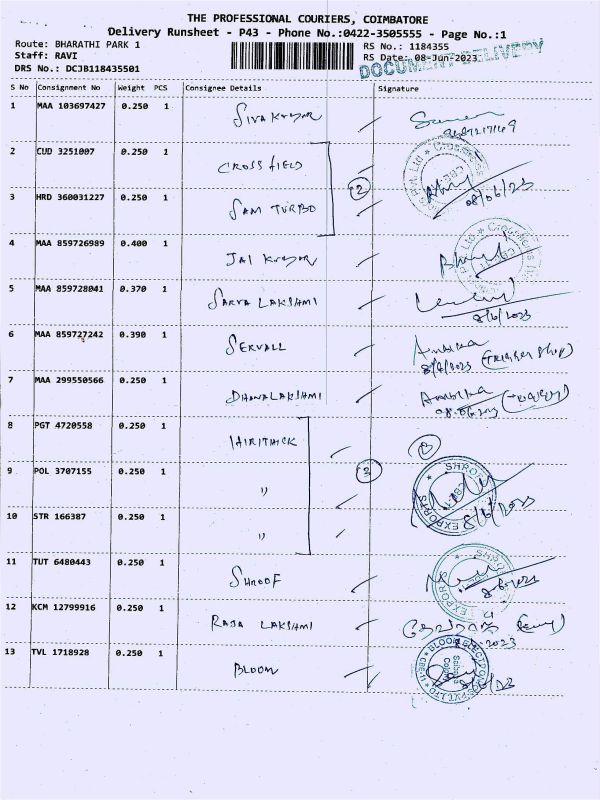 THE PROFESSIONAL COURIERS, COIMBATORE
Delivery Runsheet - P43 - Phone No.:0422-3505555 - Page No.:1
Route: BHARATHI PARK 1 RS No.: 1184355
Staff: RAVI RS Date: 08-Jun-2023
DOCUMENT DELIVERY
DRS No.: DCJB118435501
S No Consignment No Weight PCS Consignee Details Signature
1 MAA 103697427 0.250 1 SIVA KUMAR
2 CUD 3251007 0.250 1 CROSSFIELD
3 HRD 360031227 0.250 1 SAM TURBO 2 08/06/23
4 MAA 859726989 0.400 1 JAI KUMAR
5 MAA 859728041 0.370 1 SARVA LAKSHMI 8/6/2023
6 MAA 859727242 0.390 1 SERVALL Ambika 8/6/2023
7 MAA 299550566 0.250 1 DHANALAKSHMI Ambika
8 PGT 4720558 0.250 1
9 POL 3707155 0.250 1 " 3 SHROF EXPORTS 8/6/2023
10 STR 166387 0.250 1 "
11 TUT 6480443 0.250 1 SHROOF
12 KCM 12799916 0.250 1 RAJA LAKSHMI
13 TVL 1718928 0.250 1 BLOOM